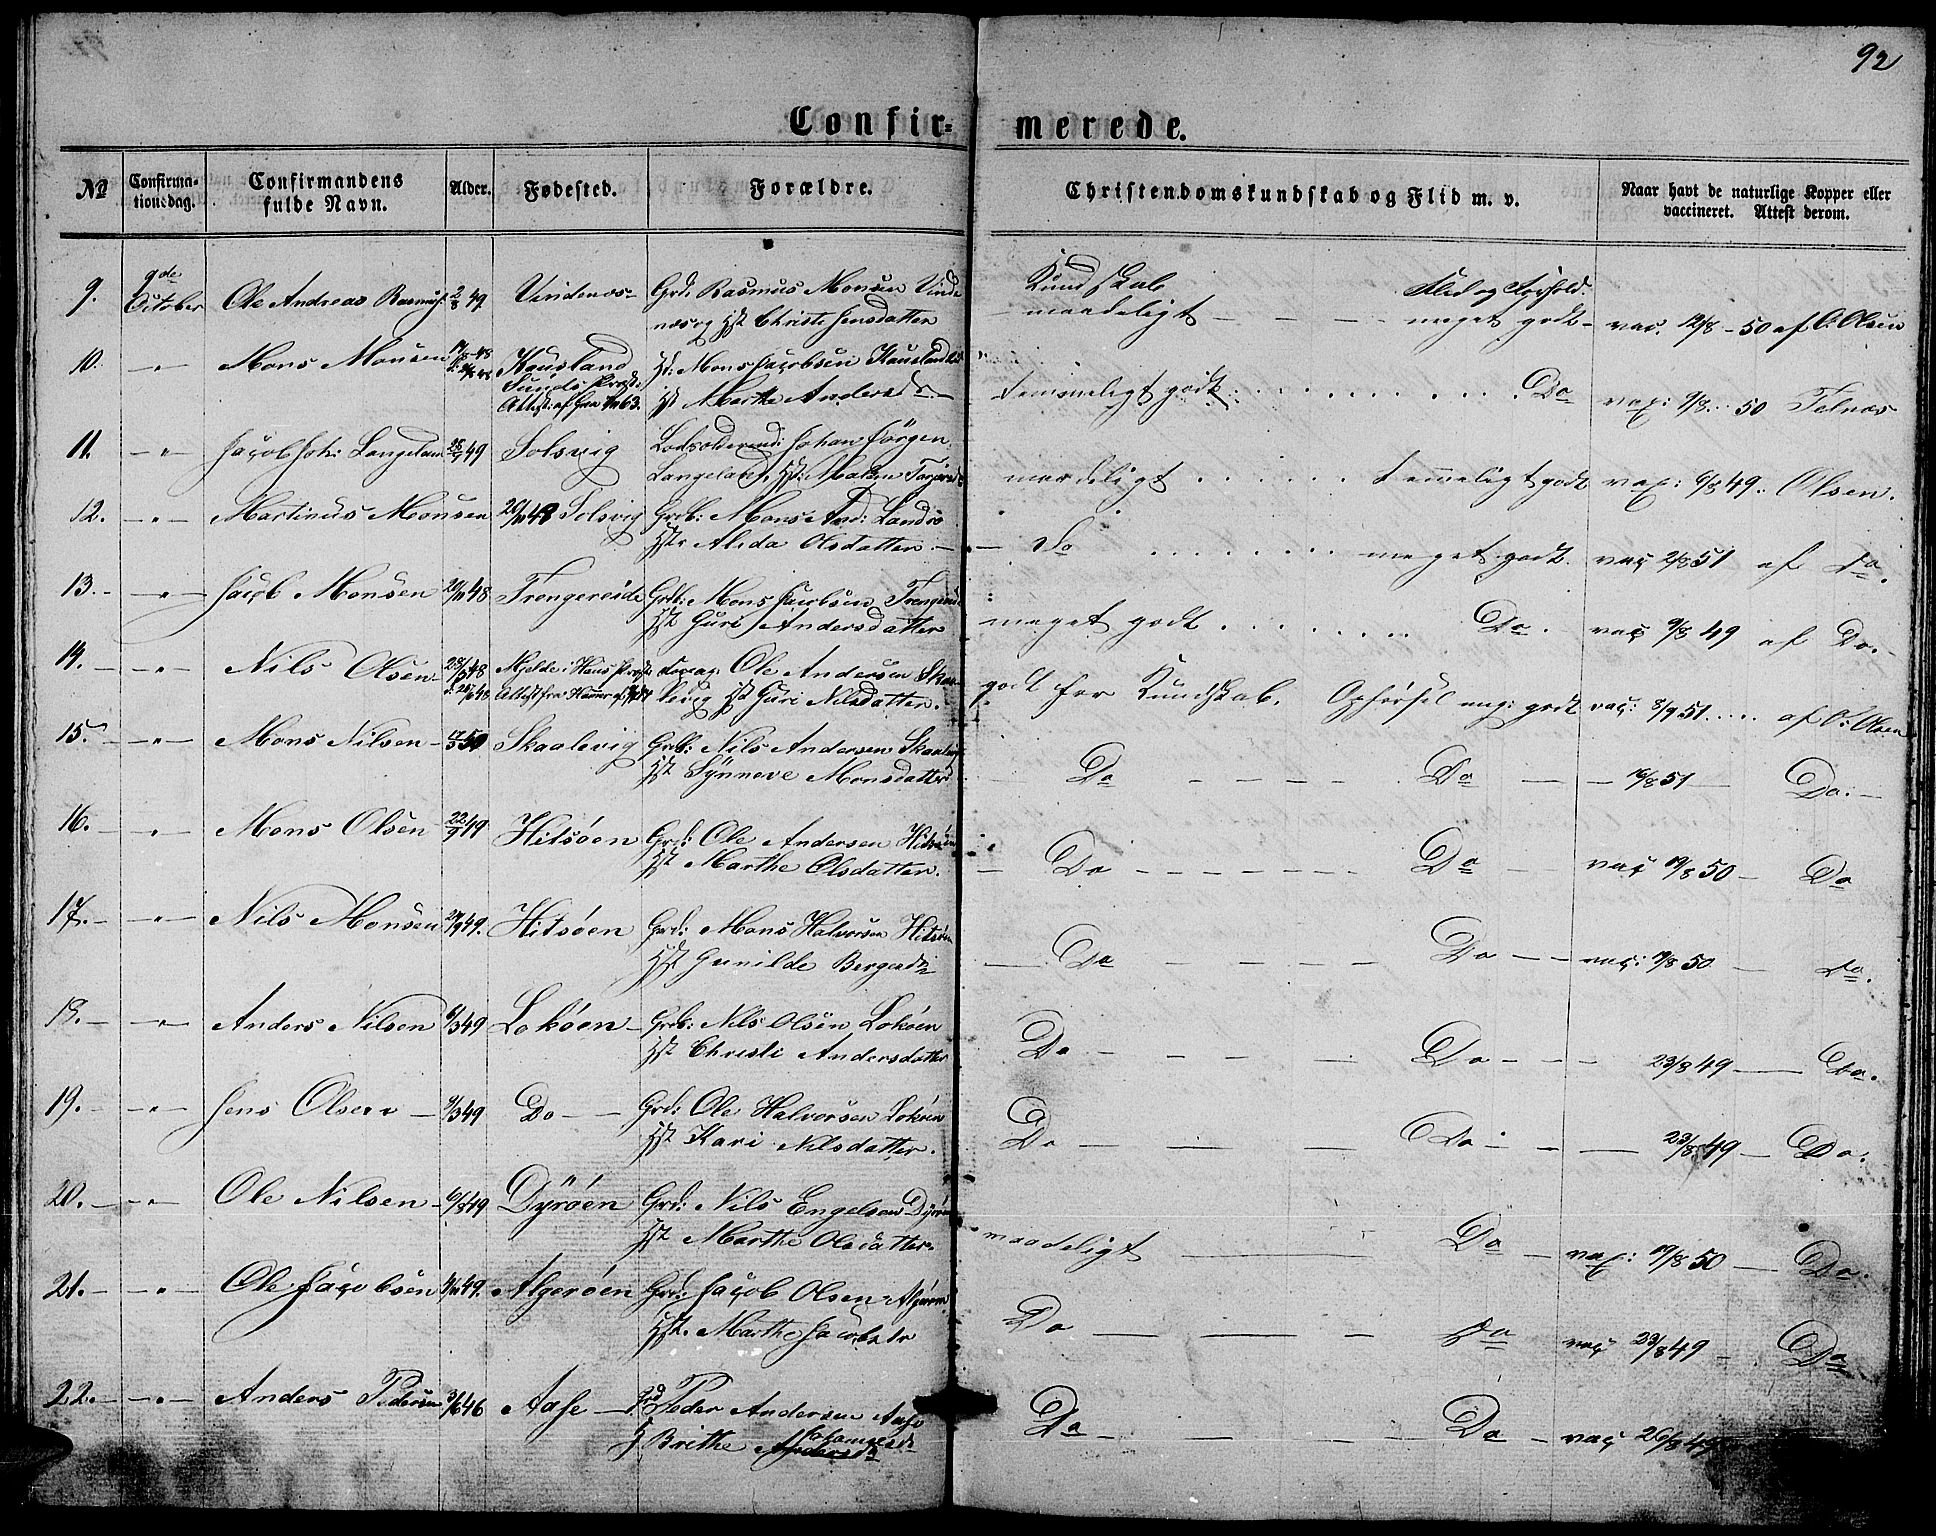 92
Confirmerede.
No
Confirmationsdag.
Confirmandens fulde Navn.
Alder.
Fødested.
Forældre.
Christendomskundskab og Flid m. v.
Naar havt de naturlige Kopper eller vaccineret. Attest derom.
9. 9de October Ole Andreas Rasmus. 2/8 49 Vindenæs Grd: Rasmus Monsen Vinde Kundskab Flid og Forhold.
næs og Hst Christi Jensdatter maadeligt — — — meget godt - vac. 12/8 - 50 af O: Olsen
10. — " — Mons Monsen Hausland Hd: Mons Jacobsen Hausland
Sunds Præst: Hst Marthe Andersd temmeligt godt . . . . . Do vax: 9/8 . . 50 Telnæs
Attest: af
11. — " — Jacob Joh: Langeland 49 Solsvig Johan Jørgen
Langeland, Hst: Malene maadeligt . . . . . temmeligt godt vax: 9/8 49 .. Olsen.
12. — " — Martinus Monsen 20/11 48 Solsvig Grdb: Mons And: Landro
Hst: Alida Olsdatter — — Do . . . . . meget godt. vac 2/8 51 af Do.
13. — " — Jacob Monsen 20/11 48 Trengereide Grdb: Mons Jacobsen
Hst Guri Andersdatter meget godt . . . . . Do . vac 9/8 49 af Do. -
14. — " — Nils Olsen 48 Mjelde i Haus Præst Ole Andersen Skaa
Attest fra Hammer levig Hst Guri Nilsdatter. godt for Kundskab. Opførsel meg: godt vac: 8/9 51 . . . . . af O: Olsen
15. — " — Mons Nilsen 50 Skaalevig Grdb: Nils Andersen Skaalevig
Hst Synneve Monsdatter Do — — — — Do — — 16/8 51 — Do. —
16. — " — Mons Olsen 22/9 49 Hitsøen Grd: Ole Andersen Hitsøen
Hst Marthe Olsdatter. — Do — — — — Do — vac 19/8 50 — Do
17. — " — Nils Monsen 49. Hitsøen Grd: Mons Halvorsen Hitsøen
Hst Gunilde Bergesdtr — Do — — — — Do — — vac: 19/8 50 — Do.
18. — " — Anders Nilsen 6/3 49 Lokøen Grdb: Nils Olsen Lokøen
Hst Christi Andersdatter Do — — — — Do — — — 23/8 49 — Do.
19. — " — Jens Olsen 9/3 49 Do — Grd: Ole Halvorsen Lokøen
Hst Kari Nilsdatter. Do — — — Do — — — 23/8 49 — Do.
20. — " — Ole Nilsen 49 Dyrøen Grd: Nils Engelsen Dyrøen
Hst Marthe Olsdatter. maadeligt — — Do — vax: 19/8 50 — Do.
21. — " — Ole Jacobsen 49. Algerøen Grd: Jacob Olsen Algerøen
Hst. Marthe Jacobsdtr Do — — — Do vac 23/8 49 — . Do
22. — " — Anders Pedersen 3/6 46 Aase — Grd Peder Andersen Aase
H Brithe Andersd Johannesd Do — — — Do — vac 26/8 49